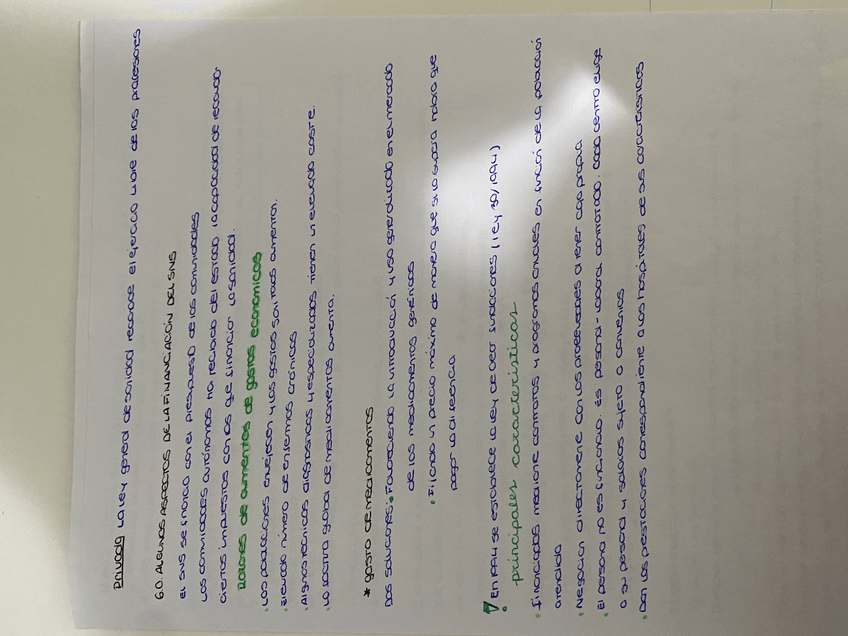 Privada La ley general de sanidad reconoce el ejercicio libre de los profesionales
6.0. ALGUNOS ASPECTOS DE LA FINANCIACIÓN DEL SNS
El SNS se financia con el presupuesto de las comunidades
Las comunidades autónomas han recibido del estado la capacidad de recaudar
ciertos impuestos con los que financiar la sanidad.
Razones de aumentos de gastos económicos
· Las poblaciones envejecen y los gastos sanitarios aumentan.
· Elevado número de enfermos crónicos
· Algunas técnicas diagnósticas y especializadas tienen un elevado coste.
· La factura global de medicamentos aumenta.
* Gasto de medicamentos
Dos soluciones: • Favoreciendo la introducción y uso generalizado en el mercado
de los medicamentos genéricos
• Fijando un precio máximo de manera que si lo supera habrá que
pagar la diferencia
En 1994 se establece la ley de crear fundaciones (Ley 30/1994)
principales características
· Financiadas mediante contratos y programas anuales en función de la población
atendida
· Negocian directamente con los proveedores al tener caja propia
· El personal no es funcionario. Es personal laboral contratado. Cada centro elige
a su personal y salarios sujeto a convenios
· Dan las prestaciones correspondiente a los hospitales de sus características